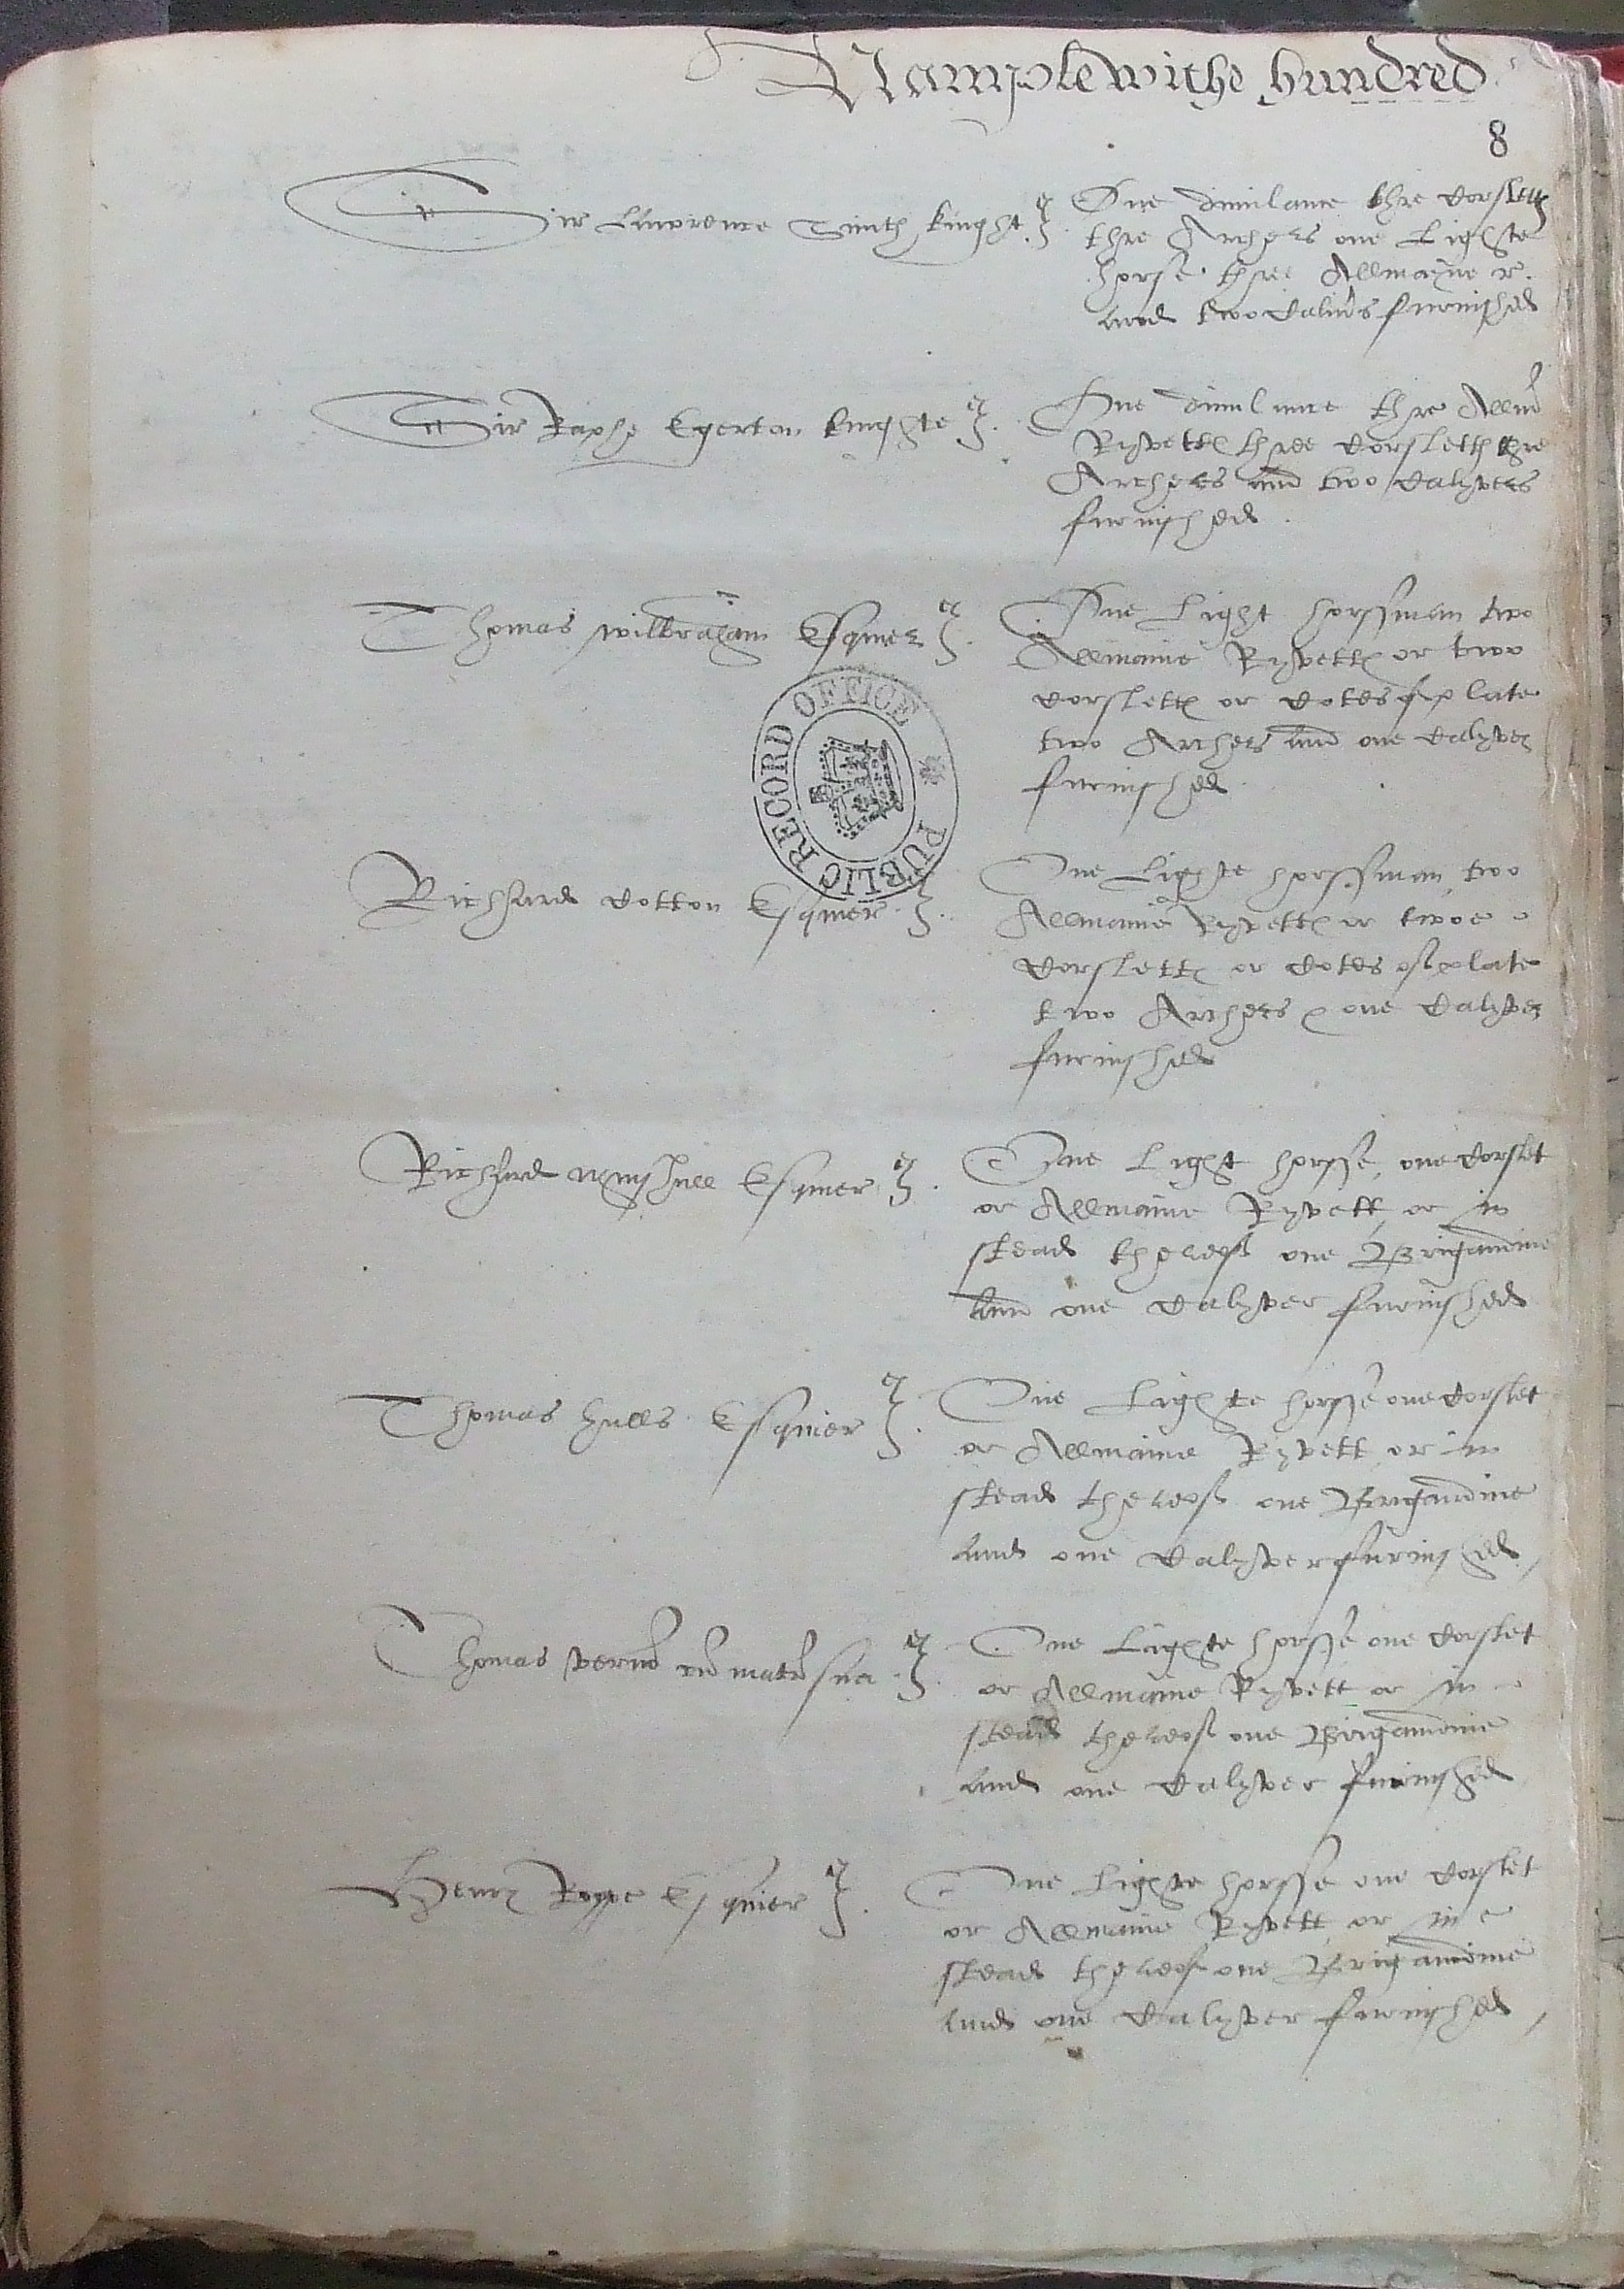 Namptewithe hundred
8
Sir Lawrence Smith knight
One dimilance thre Corsletts
thre Archers one Lighte
horse three Allmayne r.
and two Calivers furnished
Sir Raphe Egerton knighte
One dimilance thre Allm
Ryvetts three Corsletts thre
Archers and two Calyvers
furnished
Thomas Wilbraham Esquier
One Light horssman two
Allmaine Ryvetts or two
Corsletts or Cotes of plate
two Archers and one Calyver
furnished
PUBLIC RECORD OFFICE
Richard Cotton Esquier
One Lighte horssman two
Allmaine Ryvetts or twoe
Corsletts or Cotes of plate
two Archers & one Calyver
furnished
Richard Mynshull Esquier
One Light horsse one Corslet
or Allmaine Ryvett or in
stead thereof one Brigandine
and one Calyver furnished
Thomas Hulls Esquier
One Lighte horsse one Corslet
or Allmaine Ryvett or in
stead thereof one Brigandine
and one Calyver furnished
Thomas Verno cu matre sua
One Lighte horsse one Corslet
or Allmaine Ryvett or in
stead thereof one Brigandine
and one Calyver furnished
Henry Rope Esquier
One Lighte horsse one Corslet
or Allmaine Ryvett or in
stead thereof one Brigandine
and one Calyver furnished